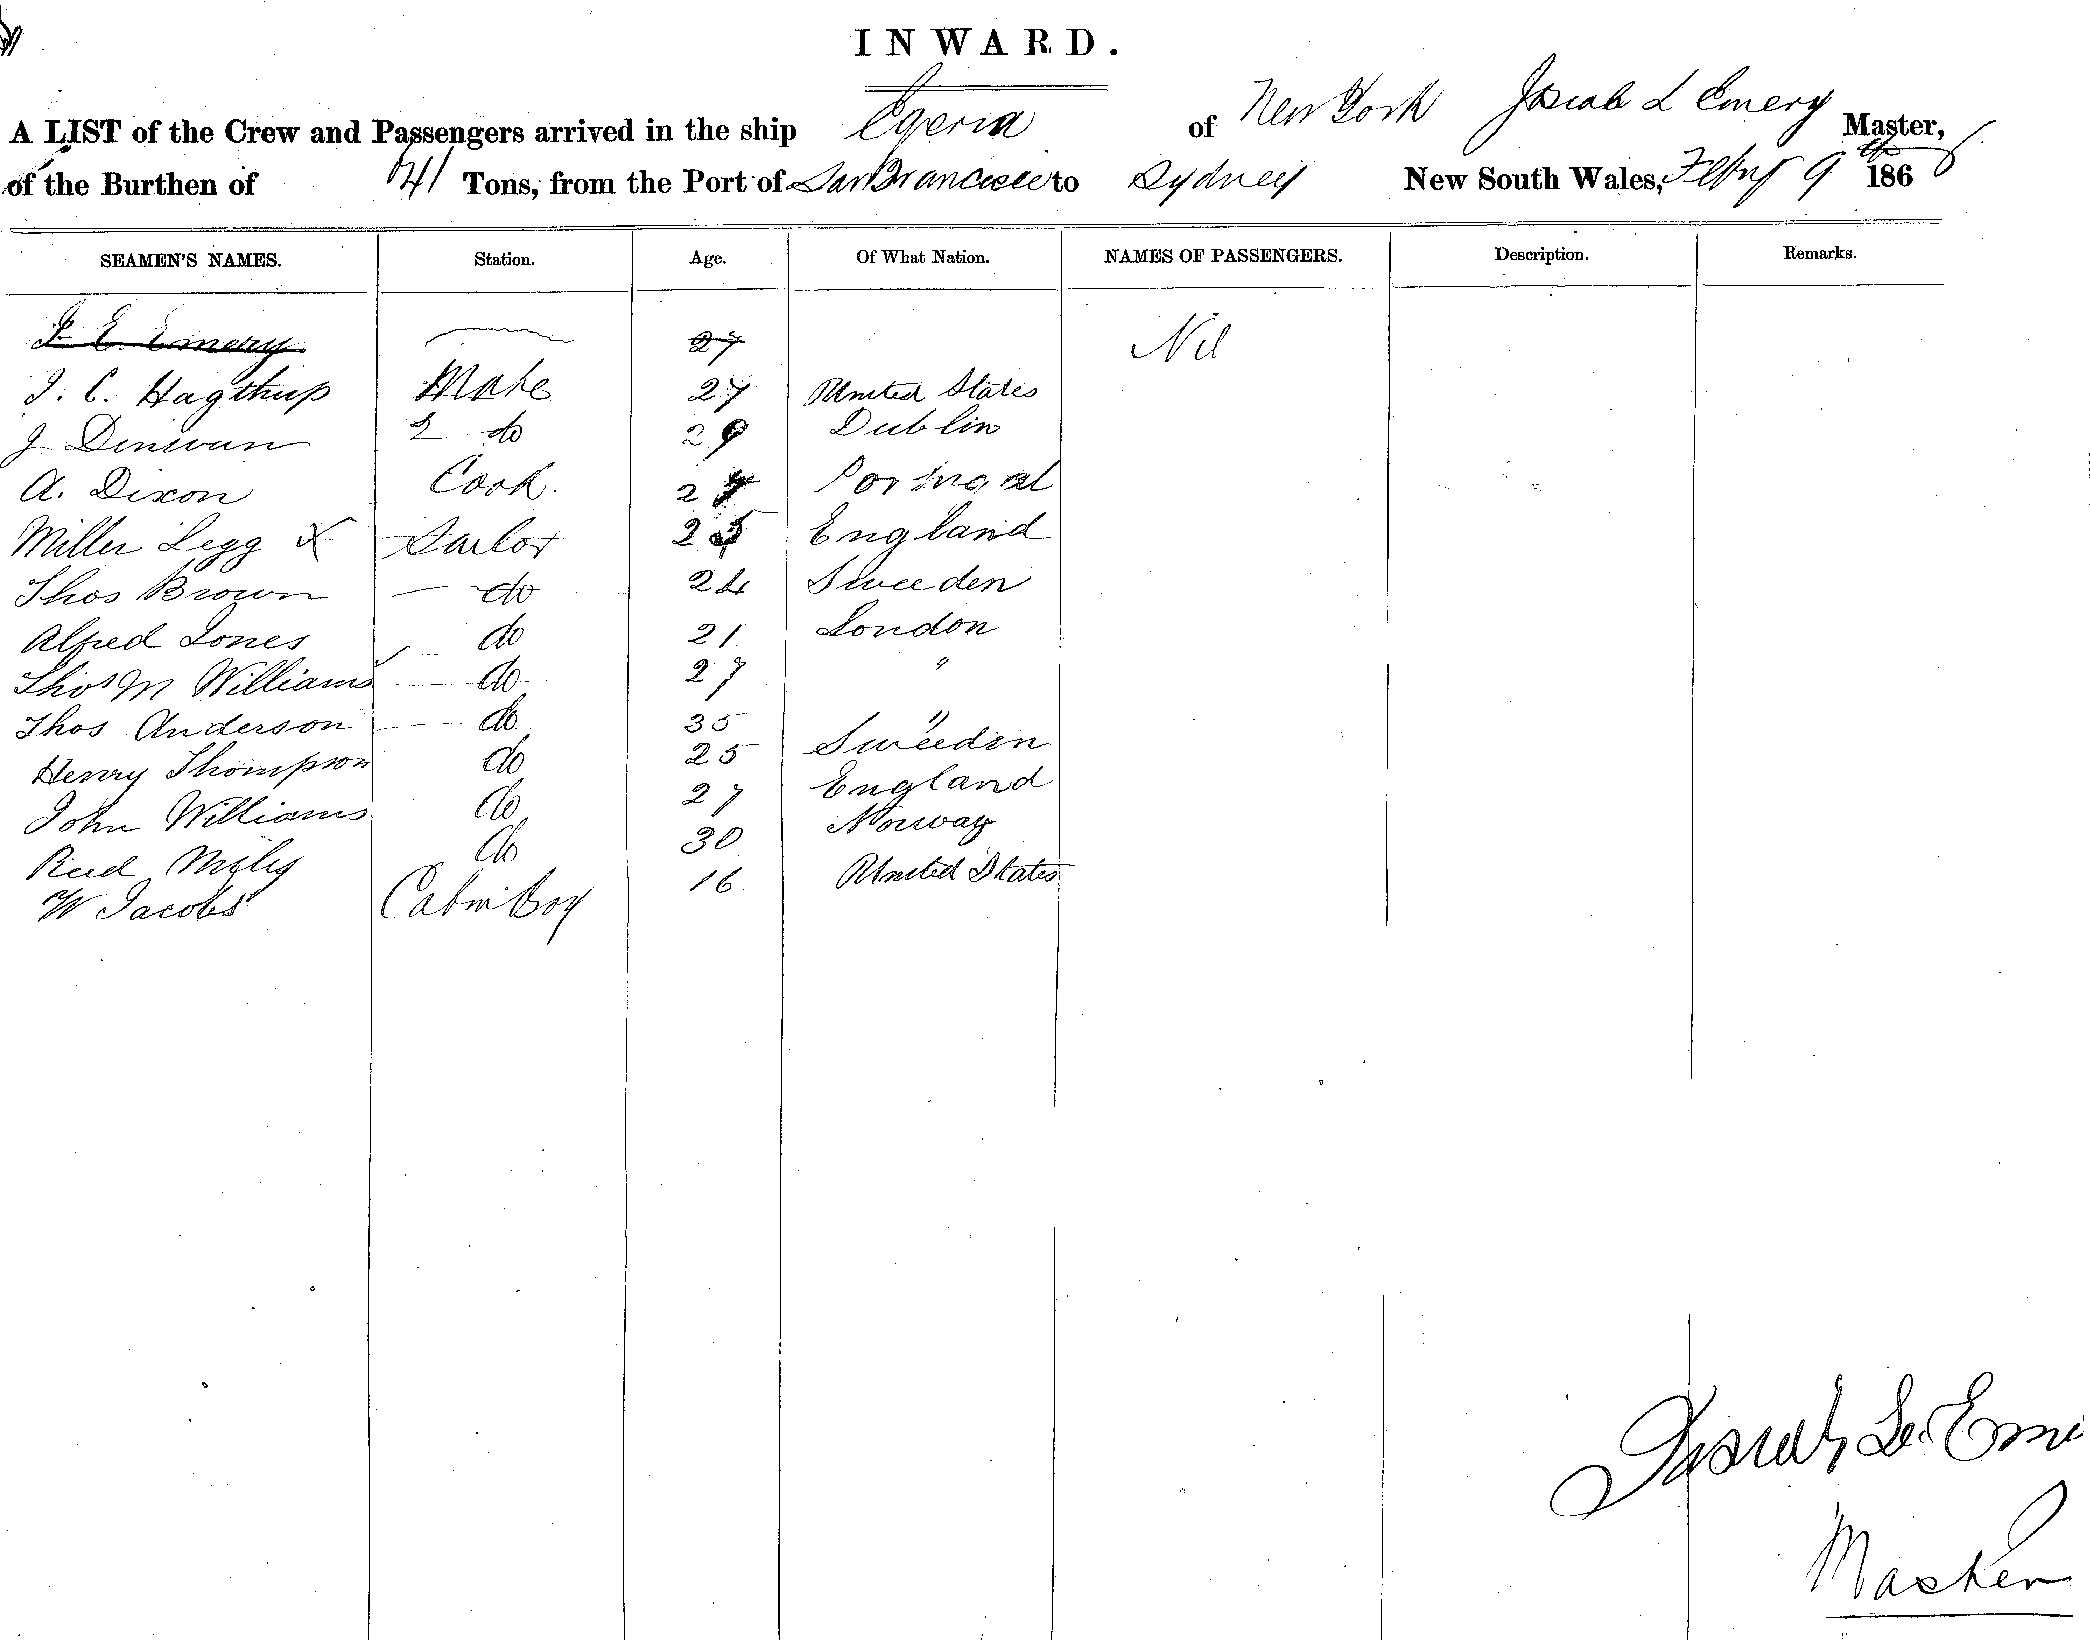 INWARD.
A LIST of the Crew and Passengers arrived in the ship Egeria of New York Josiah L Emery Master,
of the Burthen of Tons, from the Port of San Francisco to Sydney New South Wales, 9th 186
SEAMEN'S NAMES. Station. Age. Of What Nation. NAMES OF PASSENGERS. Description. Remarks.
Emery 27 Nil
J. C. Hagthup Mate 27 United States
J 2 do 29 Dublin
A. Dixon Cook. 2 Portugal
Miller Legg X Sailor 25 England
Thos Brown do 24 Sweeden
Alfred Jones do 21 London
Thos M Williams do 27 "
Thos Anderson do 35 "
Henry Thompson do 25 Sweeden
John Williams do 27 England
do 30 Norway
W Jacobs Cabin Boy 16 United States
Josiah L. Eme
Master